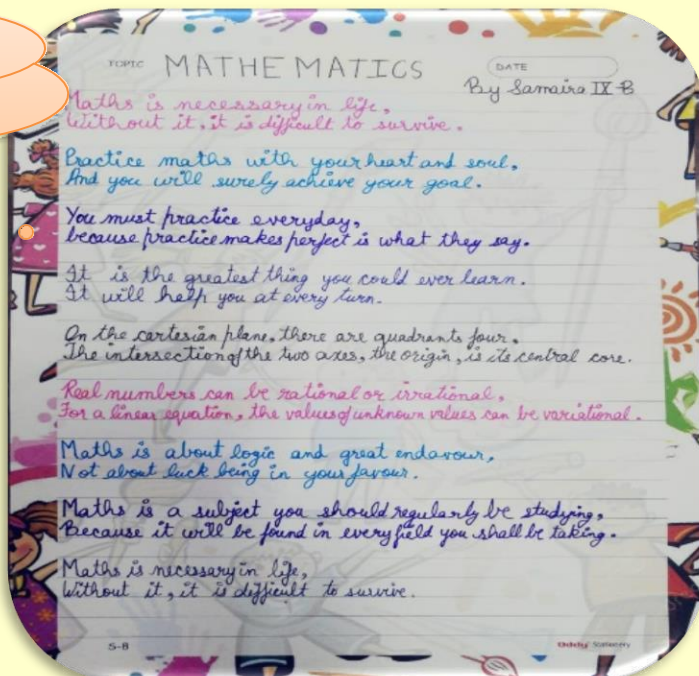 TOPIC MATHEMATICS
DATE
By Samaira IX-B
Maths is necessary in life,
Without it, it is difficult to survive.
Practice maths with your heart and soul,
And you will surely achieve your goal.
You must practice everyday,
because practice makes perfect is what they say.
It is the greatest thing you could ever learn.
It will help you at every turn.
On the cartesian plane, there are quadrants four,
The intersection of the two axes, the origin, is its central core.
Real numbers can be rational or irrational,
For a linear equation, the values of unknown values can be variational.
Maths is about logic and great endavour,
Not about luck being in your favour.
Maths is a subject you should regularly be studying,
Because it will be found in every field you shall be taking.
Maths is necessary in life,
Without it, it is difficult to survive.
5-8
Oddy Stationery